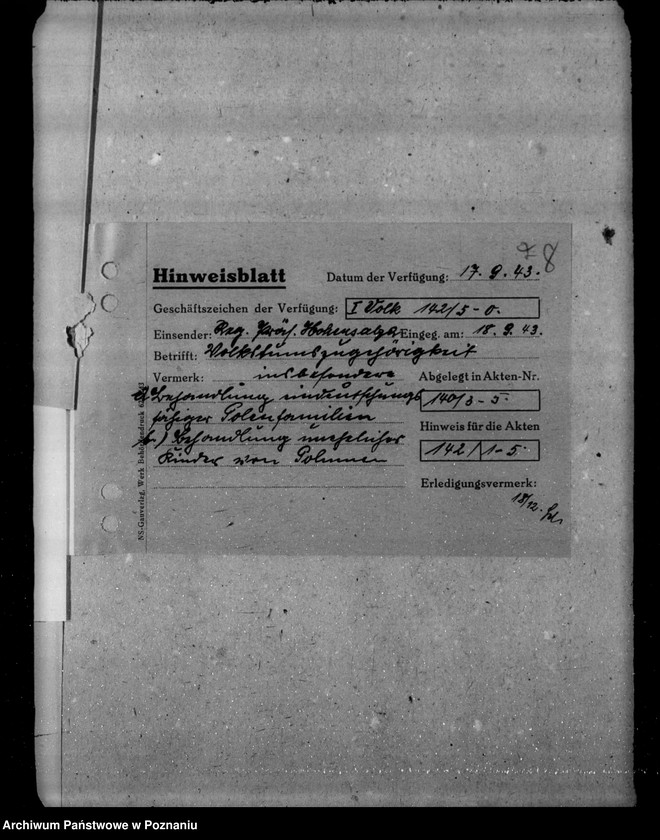 78
Hinweisblatt
Datum der Verfügung: 17. 9. 43.
Geschäftszeichen der Verfügung: I Volk 142/5-0.
Einsender: Reg. Präs. Hohensalza Eingeg. am: 18. 9. 43.
Betrifft: Volkstumszugehörigkeit
Vermerk: insbesondere
Abgelegt in Akten-Nr.
a) Behandlung eindeutschungs
140/3-5.
fähiger Polenfamilien
Hinweis für die Akten
b.) Behandlung unehelicher
142/1-5
Kinder von Polinnen
Erledigungsvermerk:
18/12.
NS-Gauverlag, Werk
Archiwum Państwowe w Poznaniu